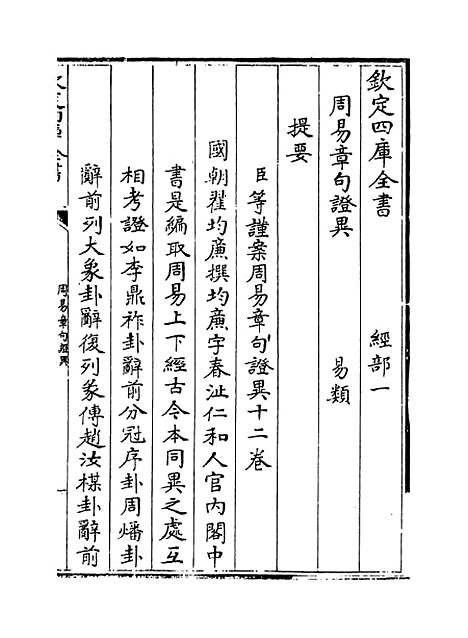 欽定四庫全書 經部一
周易章句證異 易類
提要
臣等謹案周易章句證異十二卷
國朝翟均廉撰均廉字春沚仁和人官内閣中
書是編取周易上下經古今本同異之處互
相考證如李鼎祚卦辭前分冠序卦周燔卦
辭前列大象卦辭復列彖傳趙汝楳卦辭前
周易章句證異
一